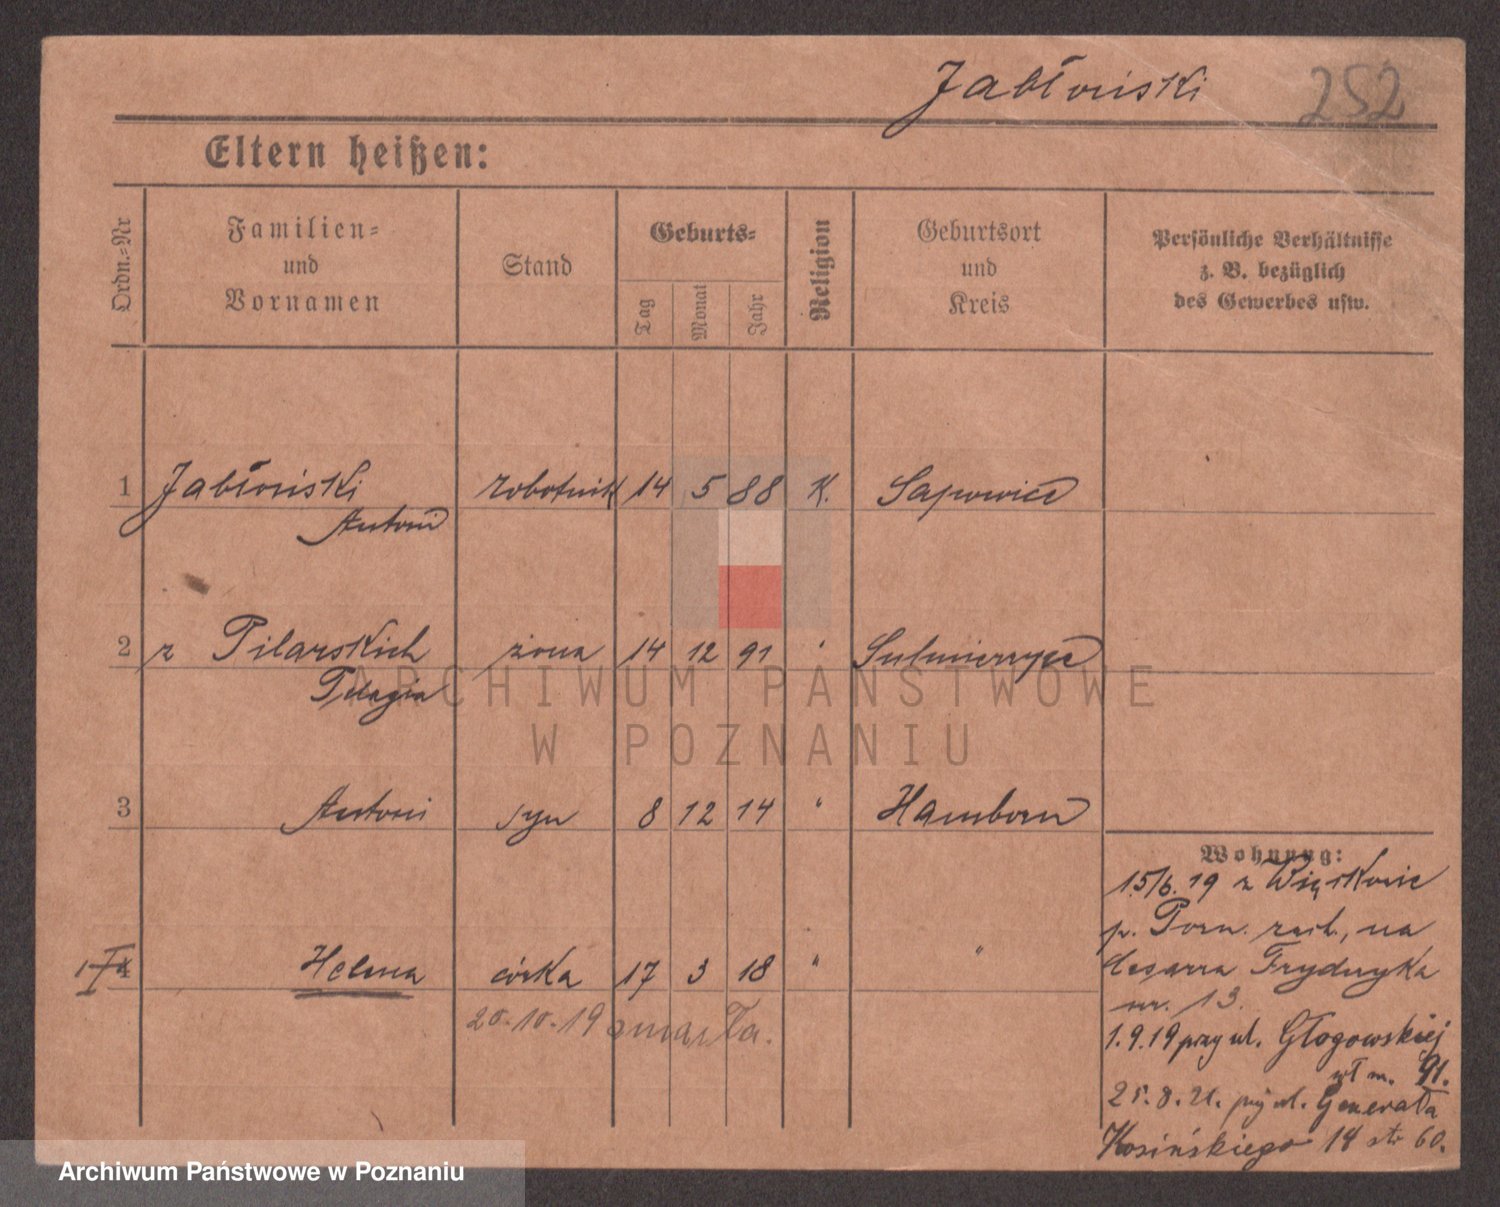 Jabłoński 252
Eltern heißen:
Ordn.-Nr
Familien-
und
Vornamen
Stand
Geburts-
Tag
Monat
Jahr
Religion
Geburtsort
und
Kreis
Persönliche Verhältnisse
z. B. bezüglich
des Gewerbes usw.
1 Jabłoński robotnik 14 5 88 K. Sapowice
Antoni
2 z Pilarskich żona 14 12 91 " Sulmierzyce
Pelagia
3 Antoni syn 8 12 14 " Hamborn
4 Helena córka 17 3 18 " "
20.10.19 zmarła.
Wohnung:
15/6.19 z Więckowic
p. Pozn. zach., na
Cesarza Fryderyka
nr. 13.
1.9.19 przy ul. Głogowskiej
wł m. 91.
25.8.21. przy ul. Generała
Kosińskiego 14 str 60.
ARCHIWUM PAŃSTWOWE
W POZNANIU
Archiwum Państwowe w Poznaniu